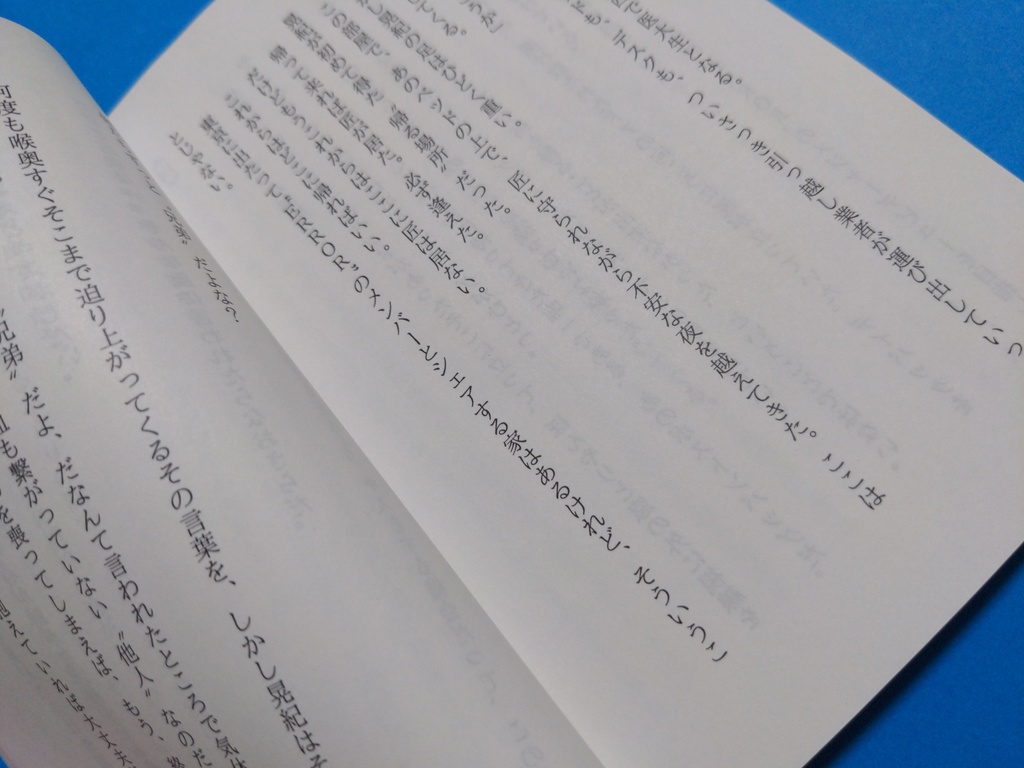 で医大生となる。
も、デスクも、ついさっき引っ越し業者が運び出していっ
している。
うか」
し晃紀の足はひどく重い。
の部屋で、あのベッドの上で、匠に守られながら不安な夜を越えてきた。ここは
晃紀が初めて得た〝帰る場所〟だった。
帰って来れば匠が居た。必ず逢えた。
だけどもうこれからはここに匠は居ない。
これからはどこに帰ればいい。
東京に出たって〝ERROR〟のメンバーとシェアする家はあるけれど、そういうこ
とじゃない。
だよな?
何度も喉奥すぐそこまで迫り上がってくるその言葉を、しかし晃紀は
〝兄弟〟だよ、だなんて言われたところで気
も繋がっていない〝他人〟なのだ
を喪ってしまえば、もう、